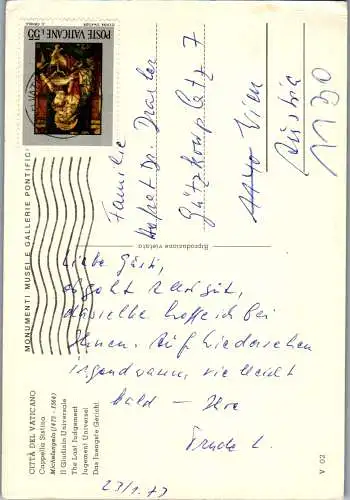 POSTE VATICANE L.55
Familie
Hofrat Dr.
1140 Wien
Austria
1130
MONUMENTI MUSEI E GALLERIE PONTIFICIE
Riproduzione vietata
Liebe
es geht sehr gut,
dasselbe hoffe ich bei
Ihnen. Auf Wiedersehen
irgendwann, vielleicht
bald – Ihre
Trude L.
23/1. 73
CITTÀ DEL VATICANO
Cappella Sistina
Michelangelo (1475 - 1564)
Il Giudizio Universale
The Last Judgement
Jugement Universel
Das Juengste Gericht
V 02